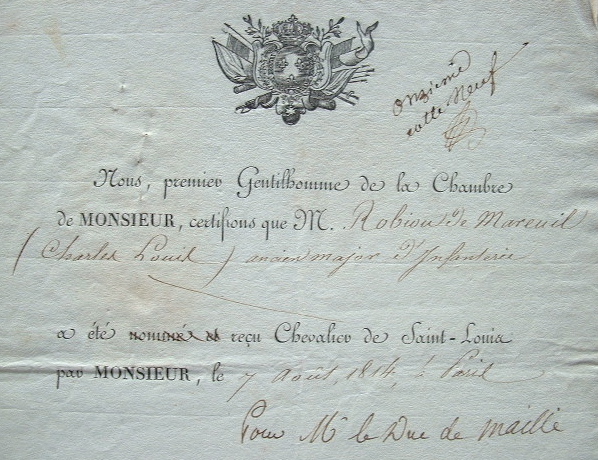 onzieme
cotte Neuf
Nous, premier Gentilhomme de la Chambre
de MONSIEUR, certifions que M. Robiou de Mareuil
(Charles Louis) ancien major d'Infanterie
a été nommé et reçu Chevalier de Saint-Louis
par MONSIEUR, le 7 Août, 1814, à Paris
Pour Mr le Duc de Maillé